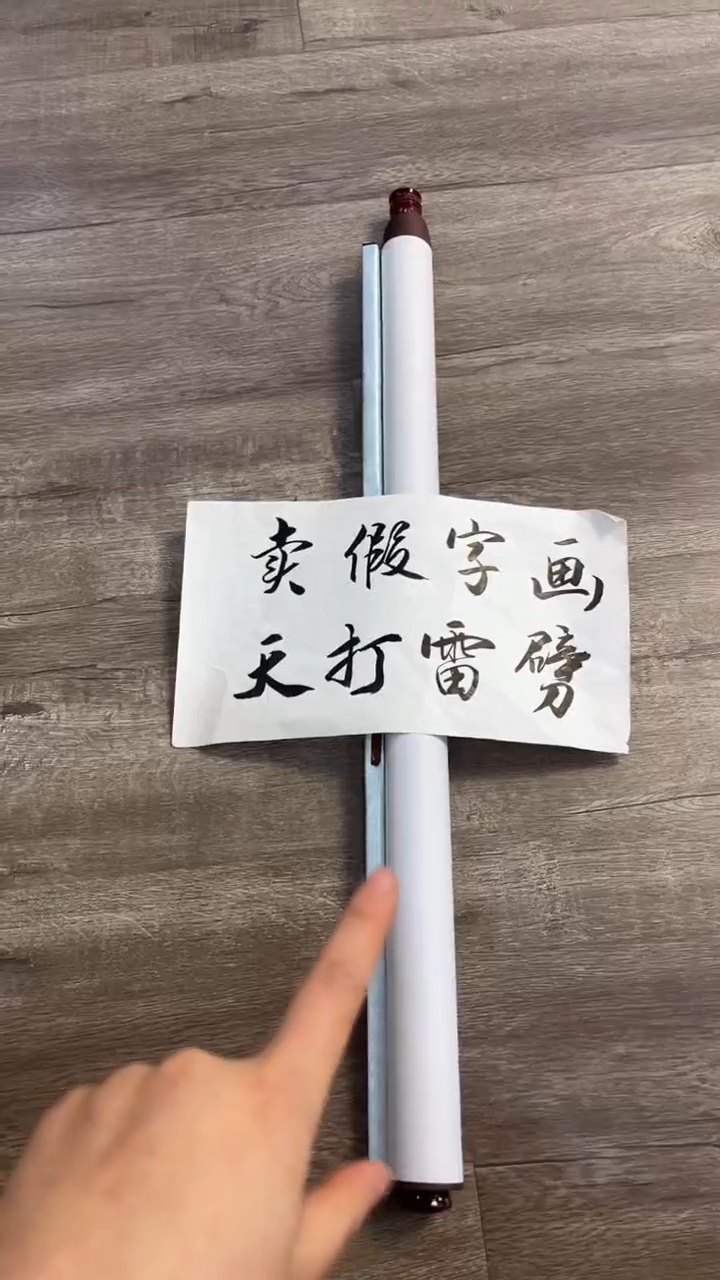 卖假字画
天打雷劈